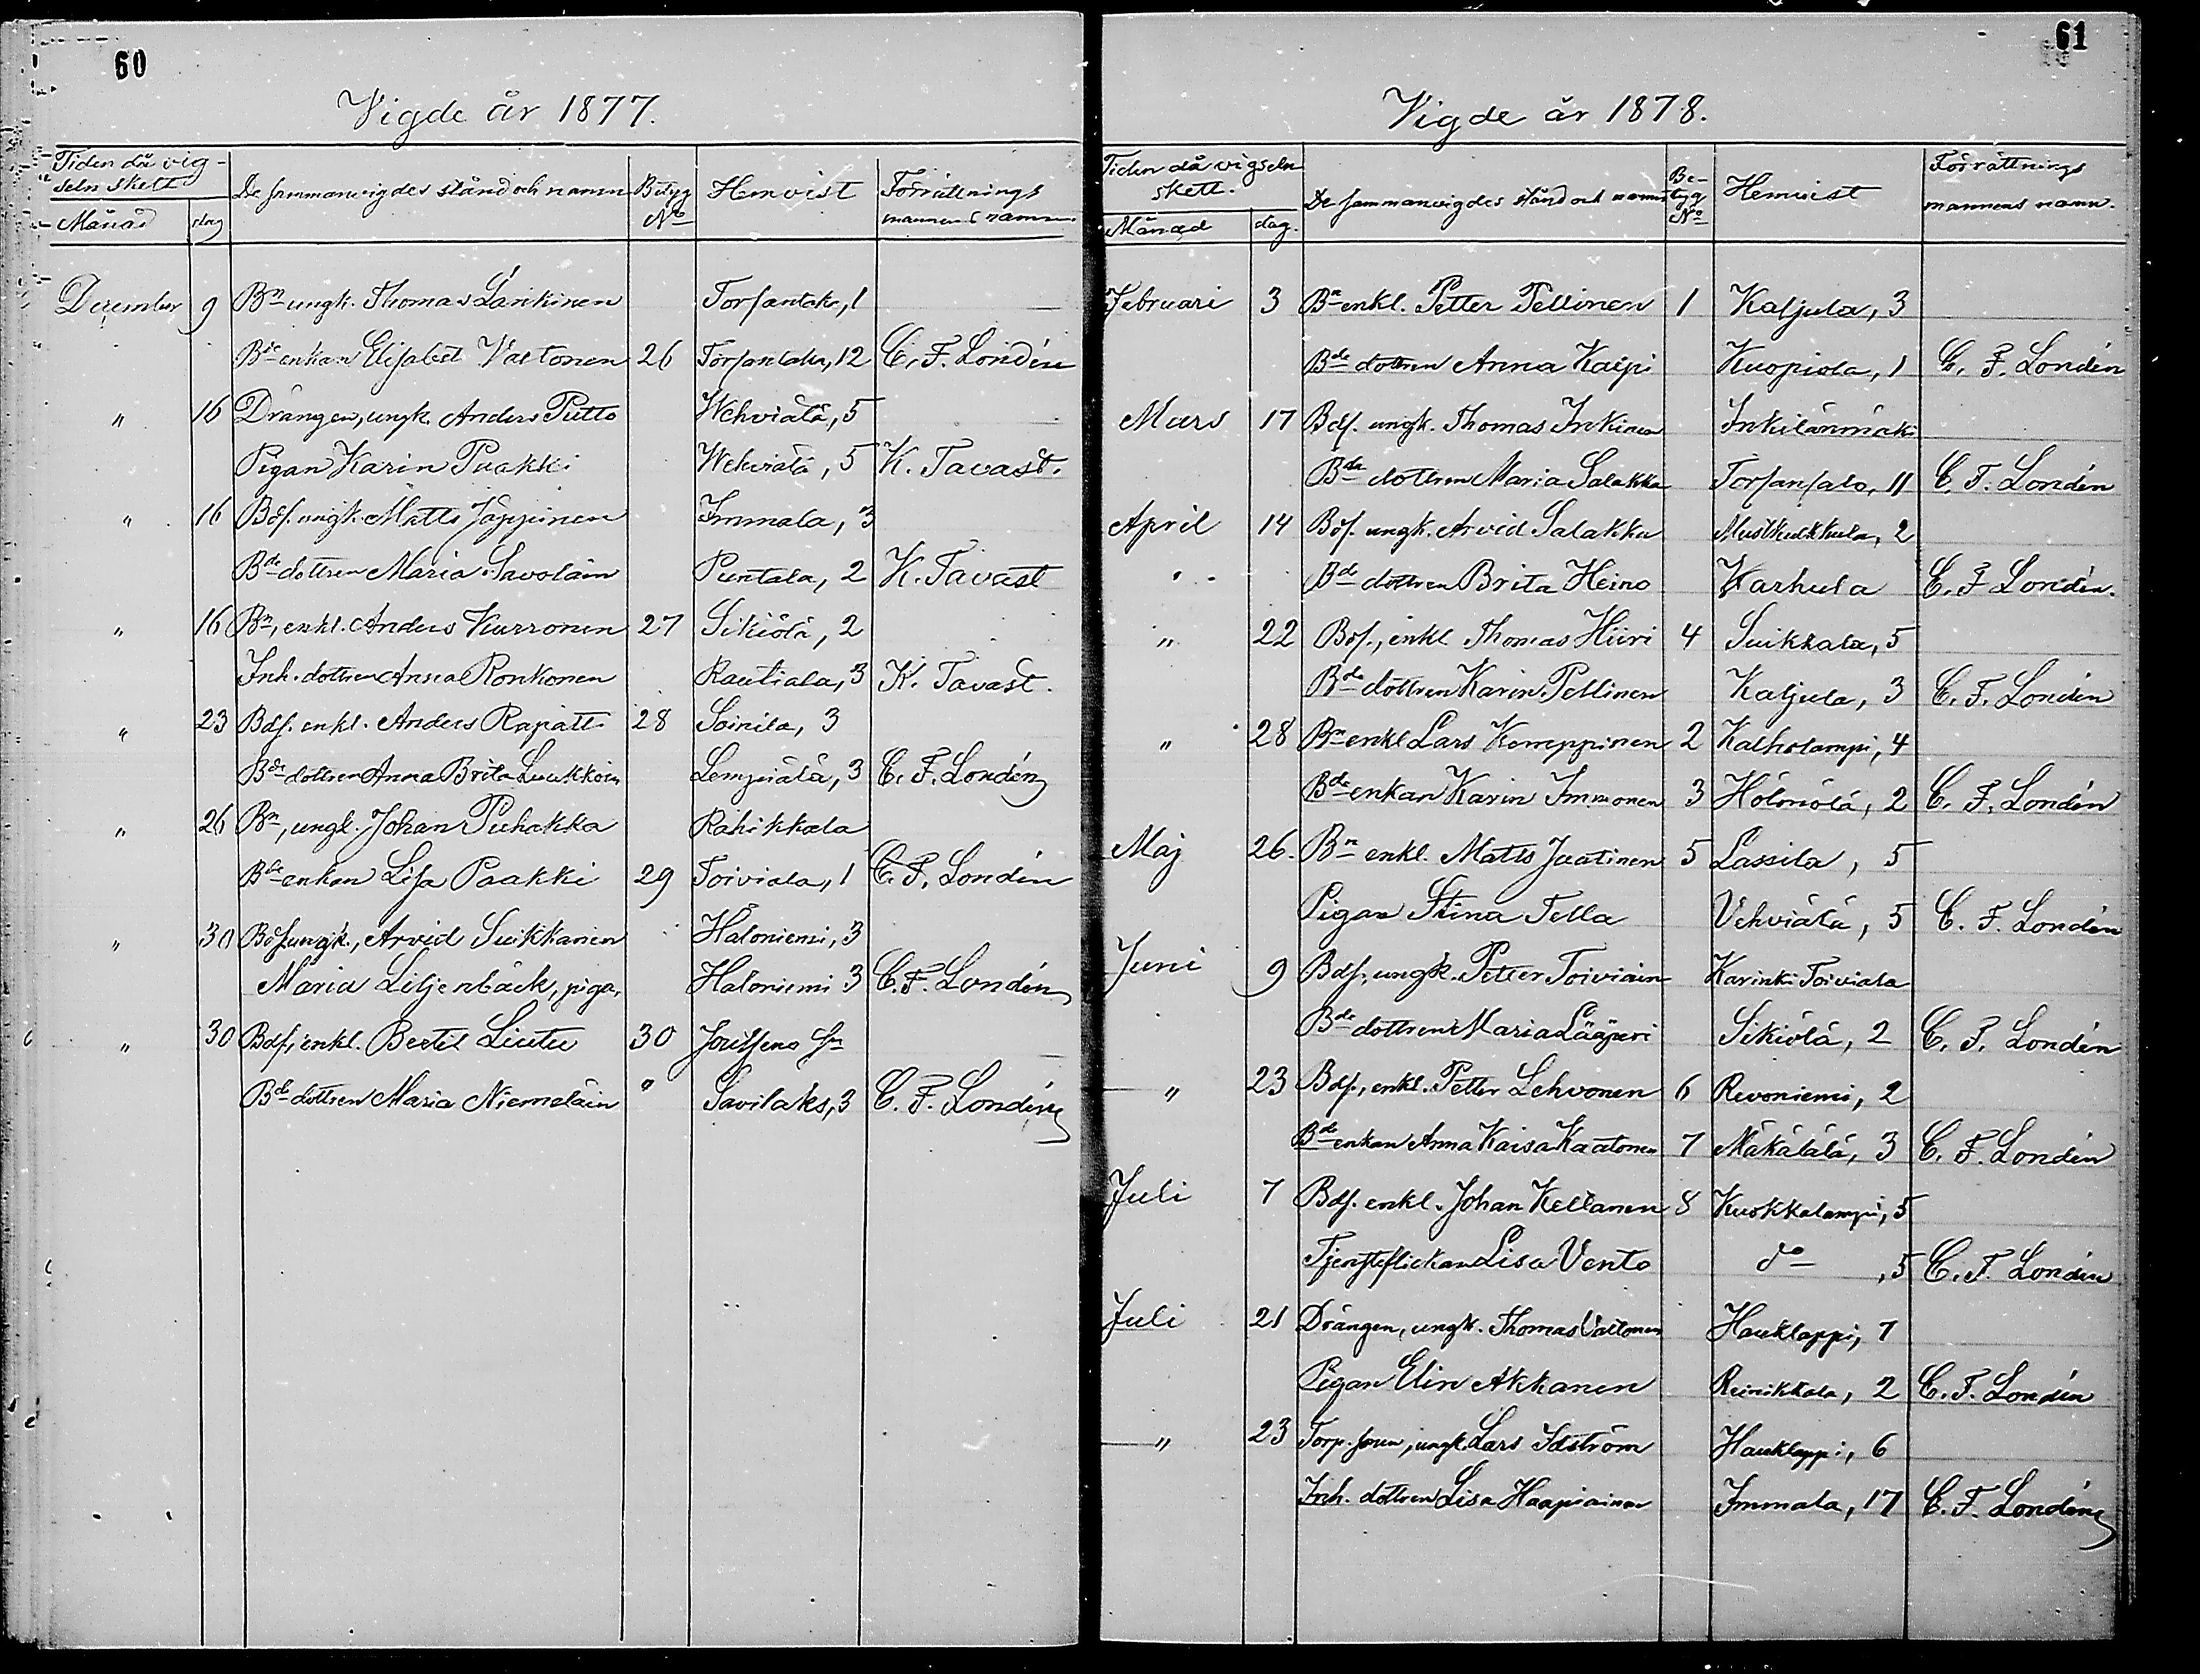 60
Vigde år 1877.
Tiden då vig-
seln skett De sammanvigdes stånd och namn Betyg Hemvist Förrättnings
Månad dag No mannens namn
December 9 Bn ungk. Thomas Länkinen Torsantaka, 1
Bde enkan Elisabet Valtonen 26 Torsantaka, 12 C. F. Londén
" 16 Drängen, ungk. Anders Putto Wehviälä, 5
Pigan Karin Paakki Wehviälä, 5 K. Tavast.
" 16 Bdf. ungk. Matts Jäppinen Immala, 3
Bde dottren Maria Savolain Puntala, 2 K. Tavast
" 16 Bn, enkl. Anders Kurronen 27 Sikiölä, 2
Inh. dottren Anna Ronkonen Rautiala, 3 K. Tavast.
" 23 Bdf. enkl. Anders Rapatti 28 Soinila, 3
Bde dottren Anna Brita Luukkoin Lempiälä, 3 C. F. Londén
" 26 Bn, ungk. Johan Puhakka Rahikkala
Bde enkan Lisa Paakki 29 Toiviala, 1 C. F. Londén
" 30 Bdf ungk., Arvid Suikkanen Haloniemi, 3
Maria Liljenbäck, piga, Haloniemi 3 C. F. Londén
" 30 Bdf, enkl. Bertil Liutu 30 Joutseno Sn
Bde dottren Maria Niemeläin " Savilaks, 3 C. F. Londén
61
Vigde år 1878.
Tiden då vigseln Be- Förrättnings
skett. De sammanvigdes stånd och namn tyg Hemvist mannens namn.
Månad dag. No
Februari 3 Bn enkl. Petter Pellinen 1 Kaljula, 3
Bde dottren Anna Kaipi Kuopiola, 1 C. F. Londén
Mars 17 Bdf. ungk. Thomas Inkinen Inkilänmäki
Bde dottren Maria Salakka Torsansalo, 11 C. F. Londén
April 14 Bdf. ungk. Arvid Salakka Mustkulkkula, 2
" Bde dottren Brita Heino Karhula C. F Londén.
" 22 Bdf., enkl Thomas Hiiri 4 Suikkala, 5
Bde dottren Karin Pellinen Kaljula, 3 C. F. Londén
" 28 Bn enkl Lars Komppinen 2 Kalholampi, 4
Bde enkan Karin Immonen 3 Hölmölä, 2 C. F. Londén
Maj 26. Bn enkl. Matts Jaatinen 5 Lassila, 5
Pigan Stina Tella Vehviälä, 5 C. F. Londén
Juni 9 Bdf., ungk. Petter Toiviain Karinki Toiviala
Bde dottren Maria Lääperi Sikiölä, 2 C. F. Londén
" 23 Bdf., enkl. Petter Lehvonen 6 Revoniemi, 2
Bde enkan Anna Kaisa Kaatonen 7 Mäkälälä, 3 C. F. Londén
Juli 7 Bdf. enkl. Johan Kellanen 8 Kuokkalampi, 5
Tjensteflickan Lisa Vento do ,5 C. F. Londén
Juli 21 Drängen, ungk. Thomas Valtonen Hauklappi, 7
Pigan Elin Akkanen Reinikkala, 2 C. F. Londén
" 23 Torp. sonen, ungk. Lars Idström Hauklappi, 6
Inh. dottren Lisa Haapiainen Immala, 17 C. F. Londén